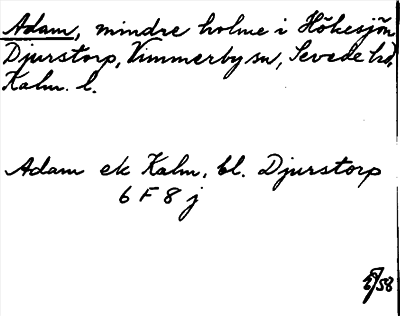 Adam, mindre holme i Hökesjön
Djurstorp, Vimmerby sn, Sevede hd,
Kalm. l.
Adam ek Kalm. bl. Djurstorp
6 F 8 j
58